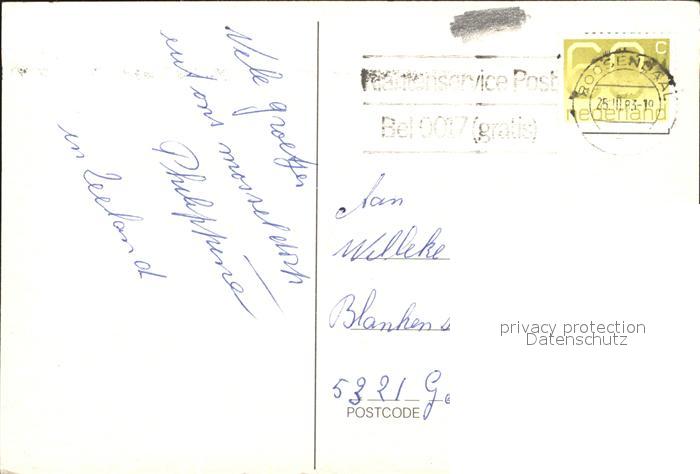 Vele groetjes
uit ons mosseldorp
Philippine
in Zeeland
60 c
nederland
ROOSENDAAL
25.III.83-19
Klantenservice Post
Bel 0017 (gratis)
Aan
Willeke
Blanken
5321 G
POSTCODE
privacy protection
Datenschutz